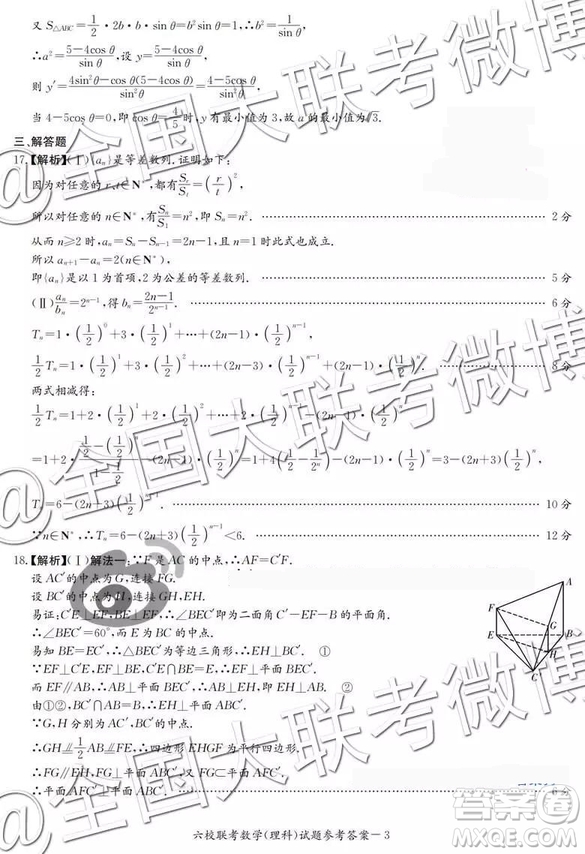 又 S△ABC=1/2·2b·b·sin θ=b²sin θ=1,∴b²=1/sin θ.
∴a²=(5-4cos θ)/sin θ,设 y=(5-4cos θ)/sin θ,
则 y′=(4sin²θ-cos θ(5-4cos θ))/sin²θ=(4-5cos θ)/sin²θ,
当 4-5cos θ=0,即cos θ=4/5时,y有最小值为3,故a的最小值为√3.
三、解答题
17.【解析】(Ⅰ){aₙ}是等差数列.证明如下:
因为对任意的 r,t∈N*,都有Sᵣ/Sₜ=(r/t)²,
所以对任意的 n∈N*,有Sₙ/S₁=n²,即 Sₙ=n². 2分
从而 n≥2 时,aₙ=Sₙ-Sₙ₋₁=2n-1,且 n=1 时此式也成立.
所以 aₙ₊₁-aₙ=2(n∈N*),
即{aₙ}是以1为首项,2为公差的等差数列. 5分
(Ⅱ)aₙ/bₙ=2ⁿ⁻¹,得 bₙ=(2n-1)/2ⁿ⁻¹. 6分
Tₙ=1·(1/2)⁰+3·(1/2)¹+…+(2n-1)·(1/2)ⁿ⁻¹,
1/2 Tₙ=1·(1/2)¹+3·(1/2)²+…+(2n-3)·(1/2)ⁿ⁻¹+(2n-1)(1/2)ⁿ. 8分
两式相减得:
1/2 Tₙ=1+2·(1/2)¹+2·(1/2)²+…+2·(1/2)ⁿ⁻¹-(2n-1)·(1/2)ⁿ
=1+2·(1/2-(1/2)ⁿ)/(1-1/2)-(2n-1)·(1/2)ⁿ=1+4(1/2-1/2ⁿ)-(2n-1)·(1/2)ⁿ=3-(2n+3)(1/2)ⁿ,
Tₙ=6-(2n+3)(1/2)ⁿ⁻¹. 10分
∵n∈N*,∴Tₙ=6-(2n+3)(1/2)ⁿ⁻¹<6. 12分
18.【解析】(Ⅰ)解法一:∵F是AC′的中点,∴AF=C′F.
设AC′的中点为G,连接FG.
设BC′的中点为H,连接GH,EH.
易证:C′E⊥EF,BE⊥EF,∴∠BEC′即为二面角C′-EF-B的平面角.
∴∠BEC′=60°,而E为BC的中点.
易知BE=EC′,∴△BEC′为等边三角形,∴EH⊥BC′. ①
∵EF⊥C′E,EF⊥BE,C′E∩BE=E,∴EF⊥平面BEC′.
而EF∥AB,∴AB⊥平面BEC′,∴AB⊥EH,即EH⊥AB. ②
由①②,BC′∩AB=B,∴EH⊥平面ABC′.
∵G,H分别为AC′,BC′的中点.
∴GH⫽1/2 AB⫽FE,∴四边形EHGF为平行四边形.
∴FG∥EH,FG⊥平面ABC′,又FG⊂平面AFC′.
∴平面AFC′⊥平面ABC′. 6分
A
F
G
E
B
H
C′
六校联考数学(理科)试题参考答案-3
@全国大联考微博
@全国大联考微博
作业帮